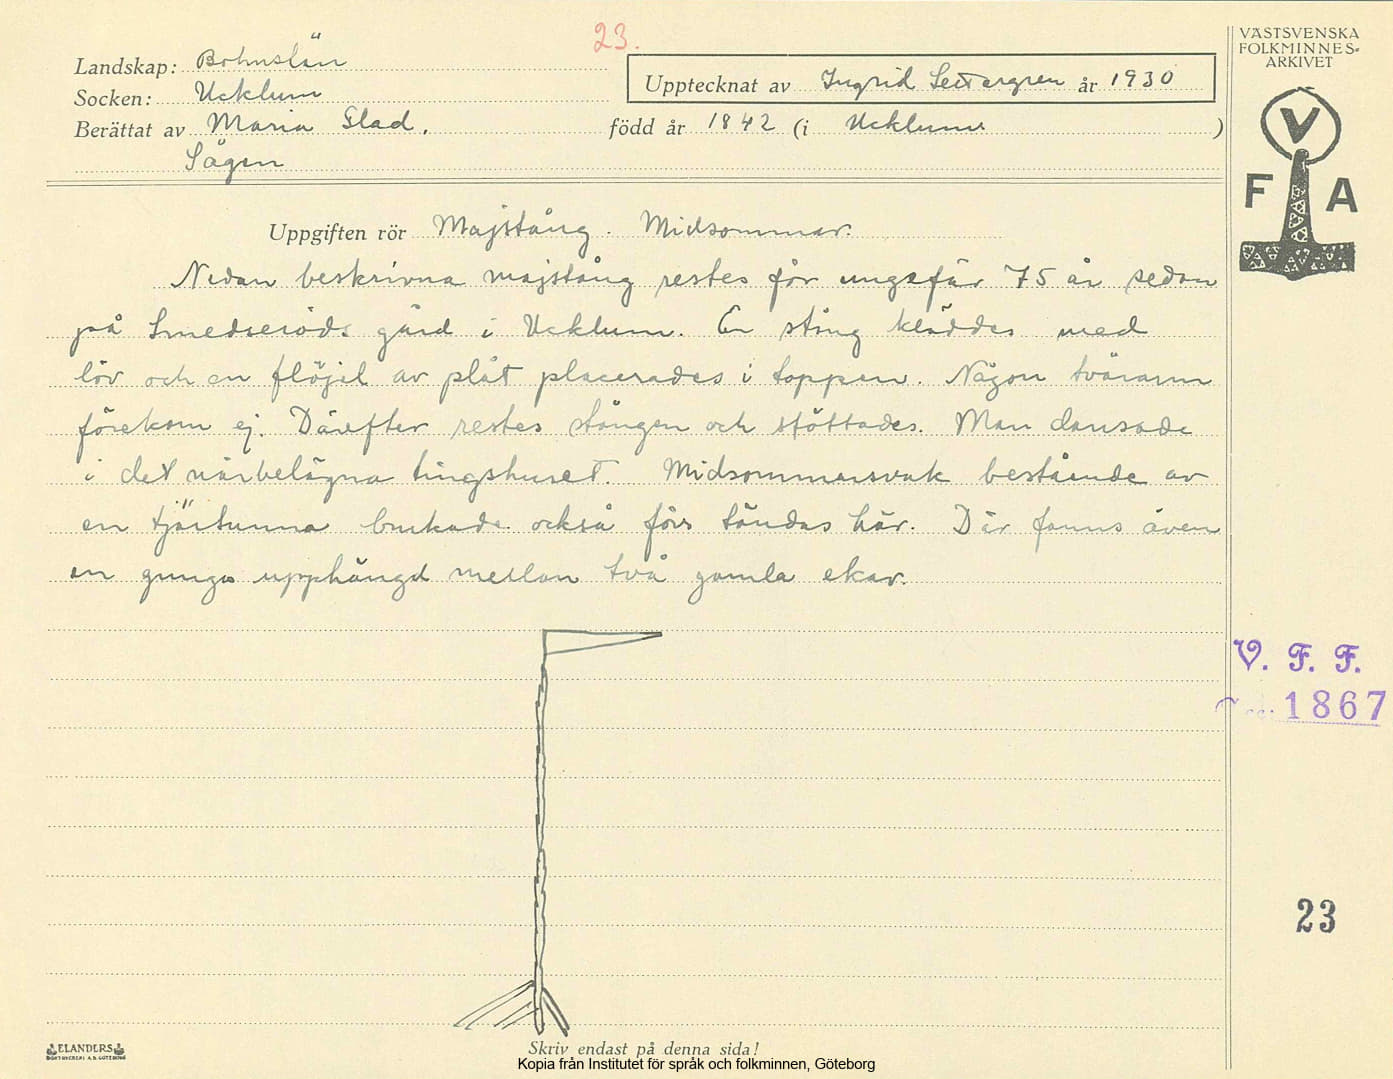 23.
Landskap: Bohuslän
Socken: Ucklum
Upptecknat av Ingrid Settergren år 1930
Berättat av Maria Glad. född år 1842 (i Ucklum )
Sågen
Uppgiften rör Majstång. Midsommar.
Nedan beskrivna majstång restes för ungefär 75 år sedan
på Smedseröds gård i Ucklum. En stång kläddes med
löv och en flöjel av plåt placerades i toppen. Någon tvärarm
förekom ej. Därefter restes stången och stöttades. Man dansade
i det närbelägna tingshuset. Midsommarsvak bestående av
en tjärtunna brukade också förr tändas här. Där fanns även
en gunga upphängd mellan två gamla ekar.
VÄSTSVENSKA
FOLKMINNES-
ARKIVET
V
F A
V. F. F.
1867
23
ELANDERS
Skriv endast på denna sida!
Kopia från Institutet för språk och folkminnen, Göteborg